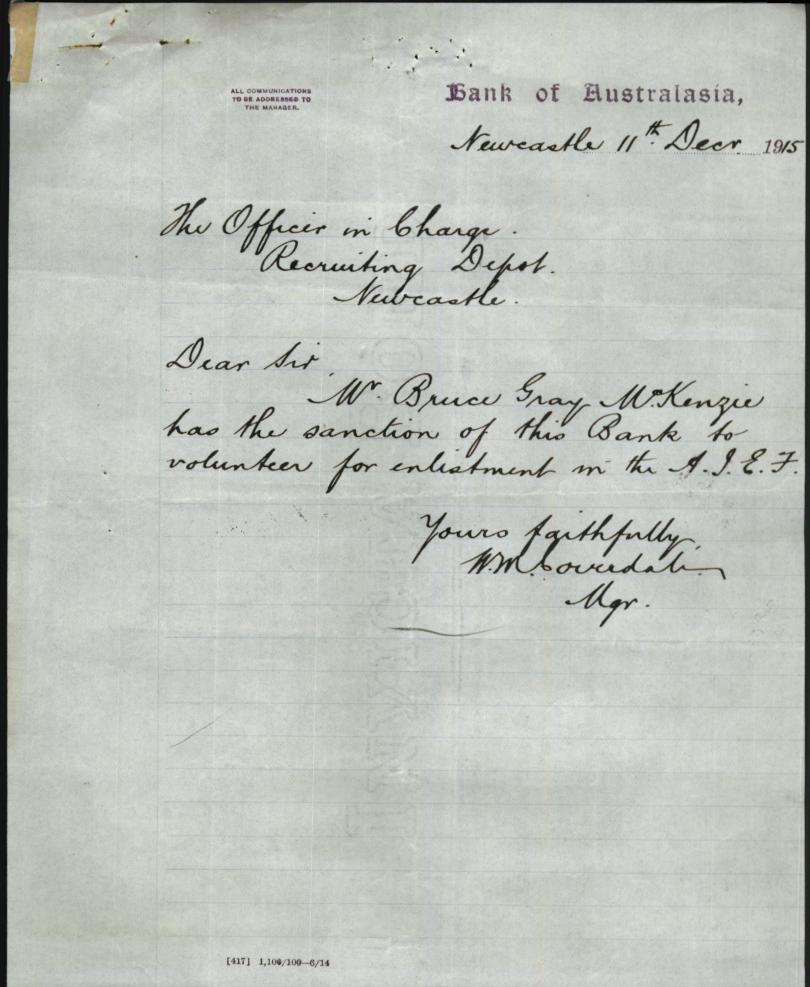 ALL COMMUNICATIONS
TO BE ADDRESSED TO
THE MANAGER.
Bank of Australasia,
Newcastle 11th Decr 1915
The Officer in Charge.
Recruiting Depot.
Newcastle.
Dear Sir,
Mr. Bruce Gray McKenzie
has the sanction of this Bank to
volunteer for enlistment in the A.I.E.F.
Yours faithfully,
Mgr.
[417] 1,100/100—6/14